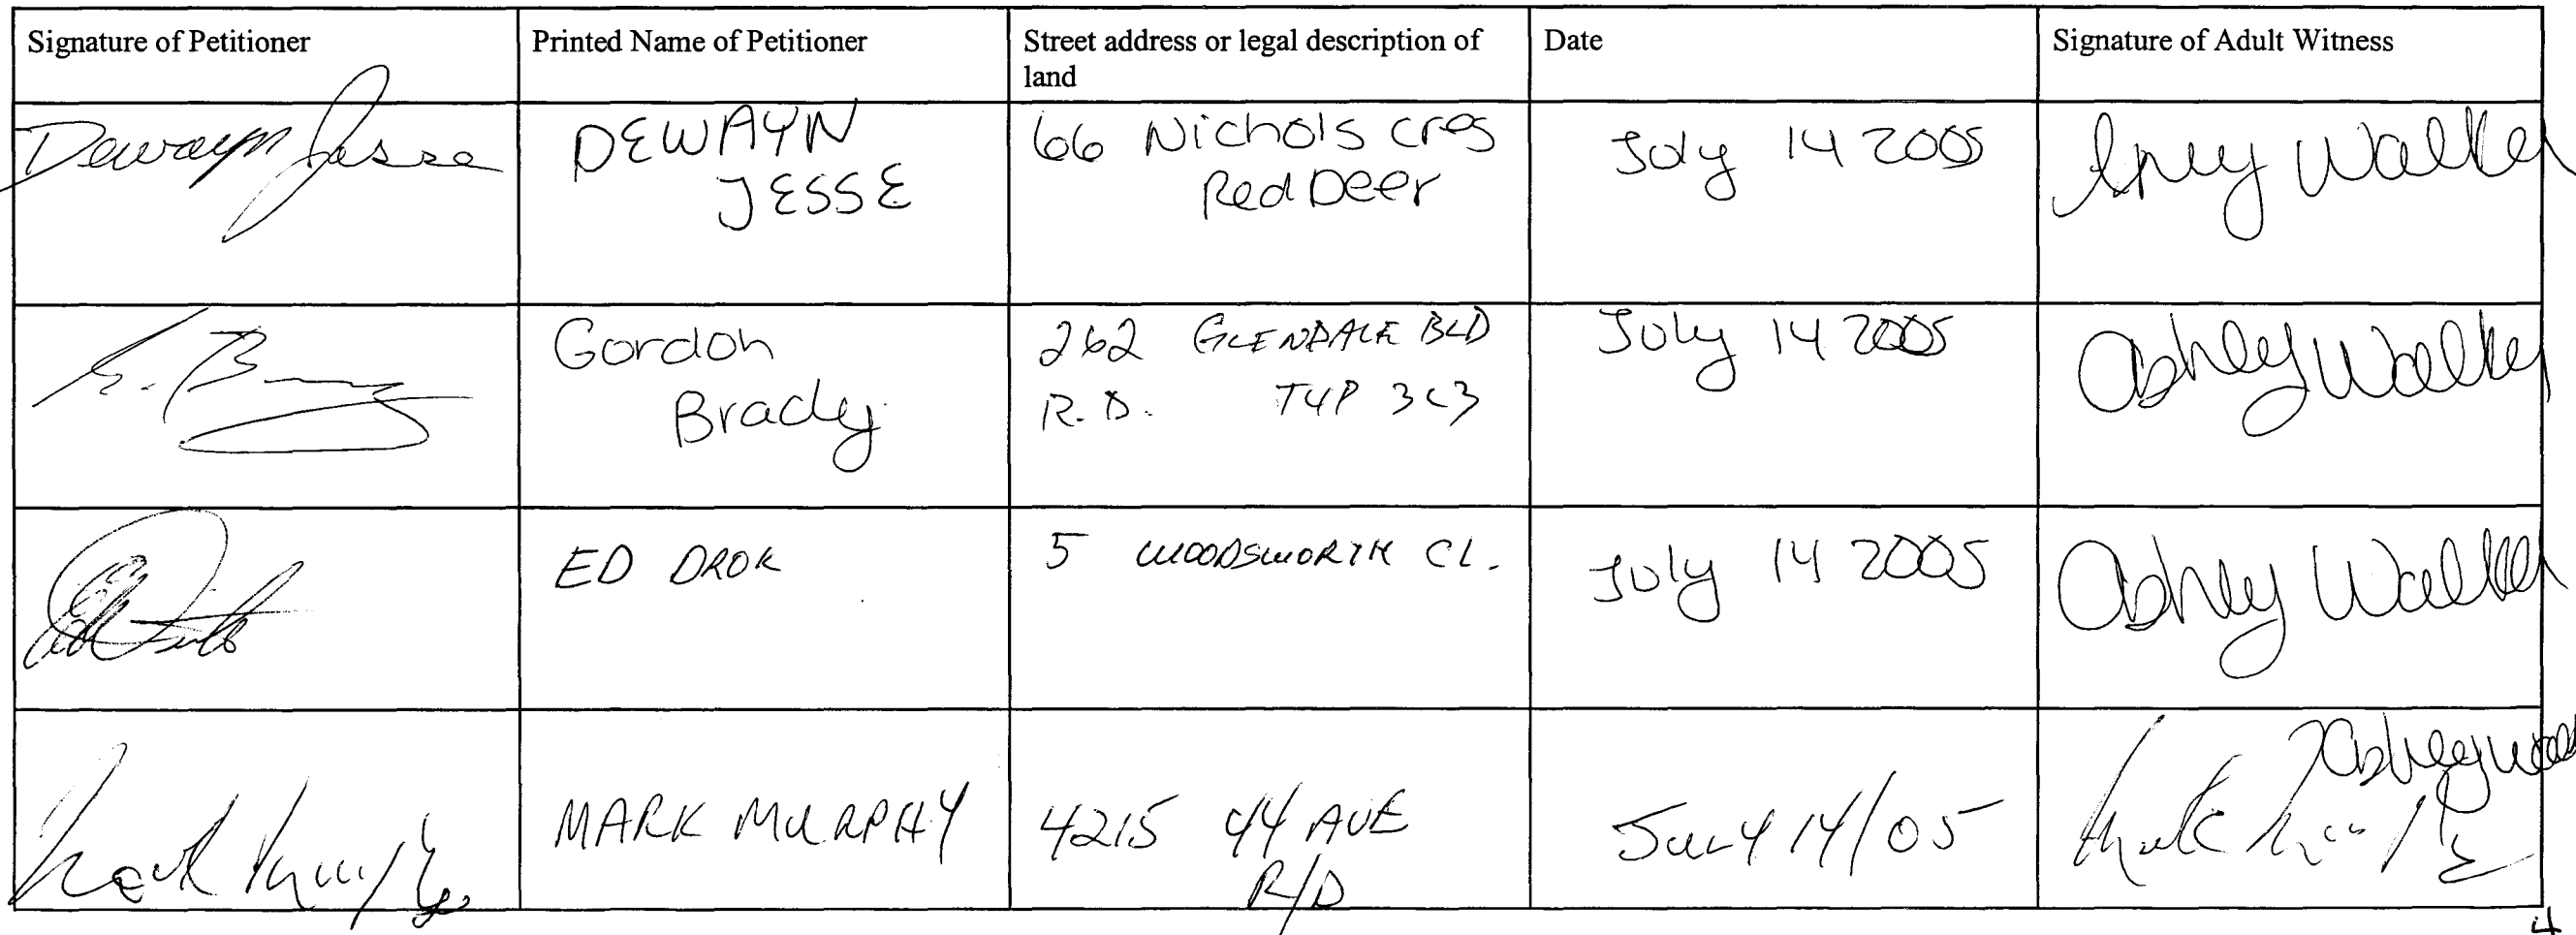 Signature of Petitioner
Printed Name of Petitioner
Street address or legal description of
land
Date
Signature of Adult Witness
Dewayn Jesse
DEWAYN
JESSE
66 Nichols cres
Red Deer
July 14 2005
Walker
G. B
Gordon
Brady
262 GLENDALE BLD
R.D. T4P 3C3
July 14 2005
Ashley Walker
ED DROK
5 WOODSWORTH CL.
July 14 2005
Ashley Walker
Mark Murphy
MARK MURPHY
4215 44 AVE
R/D
July 14/05
Ashley Walk
Mark Murphy
4